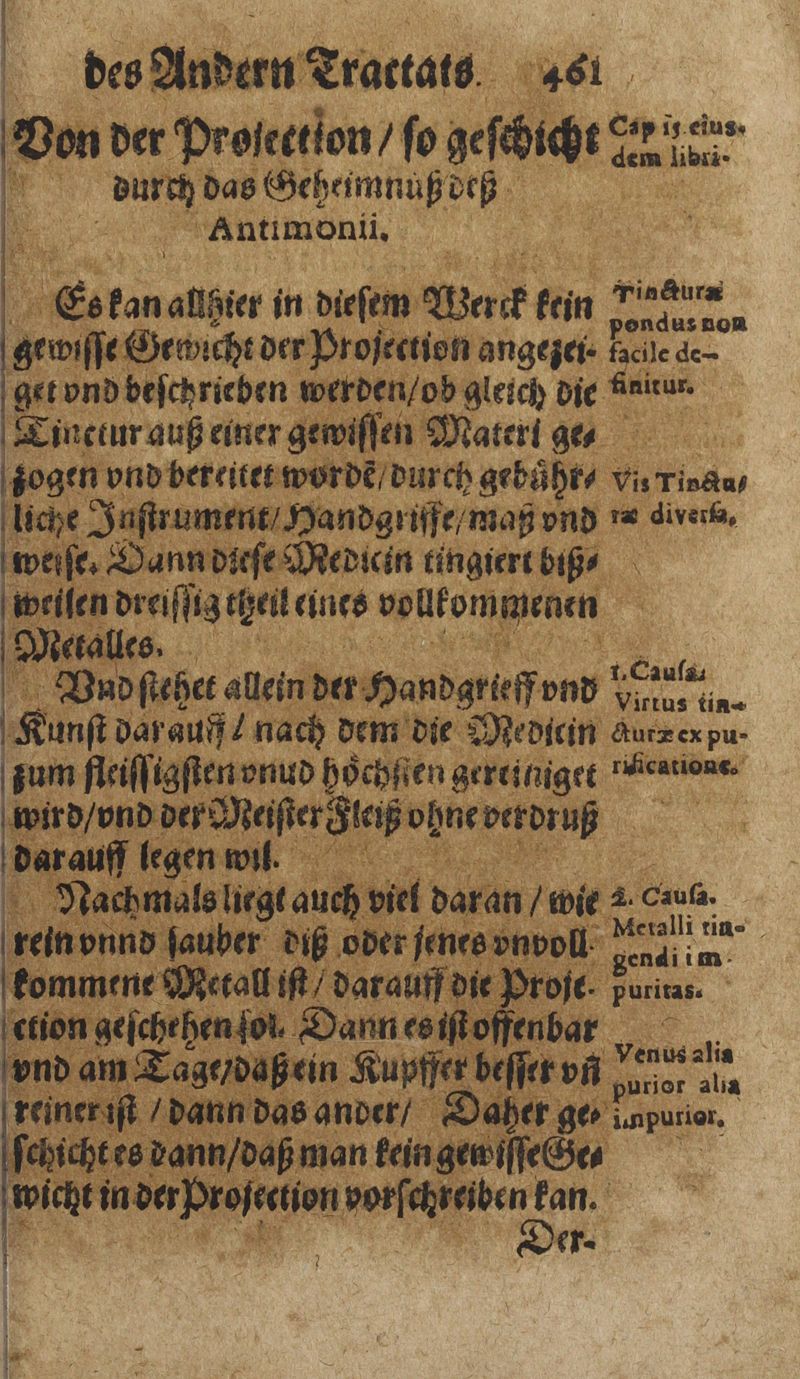 des Andern Tractats. 461
Von der Projection / so geschicht
durch das Geheimnuß deß
Antimonii.
Cap 15 eius-
dem libri.
Es kan allhier in diesem Werck kein
gewisse Gewicht der Projection angezei-
get vnd beschrieben werden/ob gleich die
Tinctur auß einer gewissen Materi ge-
zogen vnd bereitet wordē/durch gebühr-
liche Instrument/Handgriffe/maß vnd
weise. Dann diese Medicin tingiert biß-
weilen dreissig theil eines vollkommenen
Metalles.
Tincturæ
pondus non
facile de-
finitur.
Vis Tinctu-
ræ diversa.
Vnd stehet allein der Handgrieff vnd
Kunst darauff / nach dem die Medicin
zum fleissigsten vnud höchsten gereiniget
wird/vnd der Meister Fleiß ohne verdruß
darauff legen wil.
1. Causa.
Virtus tin-
cturæ ex pu-
rificatione.
Nachmals liegt auch viel daran / wie
rein vnnd sauber diß oder jenes vnvoll-
kommene Metall ist / darauff die Proje-
ction geschehen sol. Dann es ist offenbar
vnd am Tage/daß ein Kupffer besser vñ
reiner ist / dann das ander/ Daher ge-
schicht es dann/daß man kein gewisse Ge-
wicht in der Projection vorschreiben kan.
2. Causa.
Metalli tin-
gendi im-
puritas.
Venus alia
purior alia
impurior.
Der-